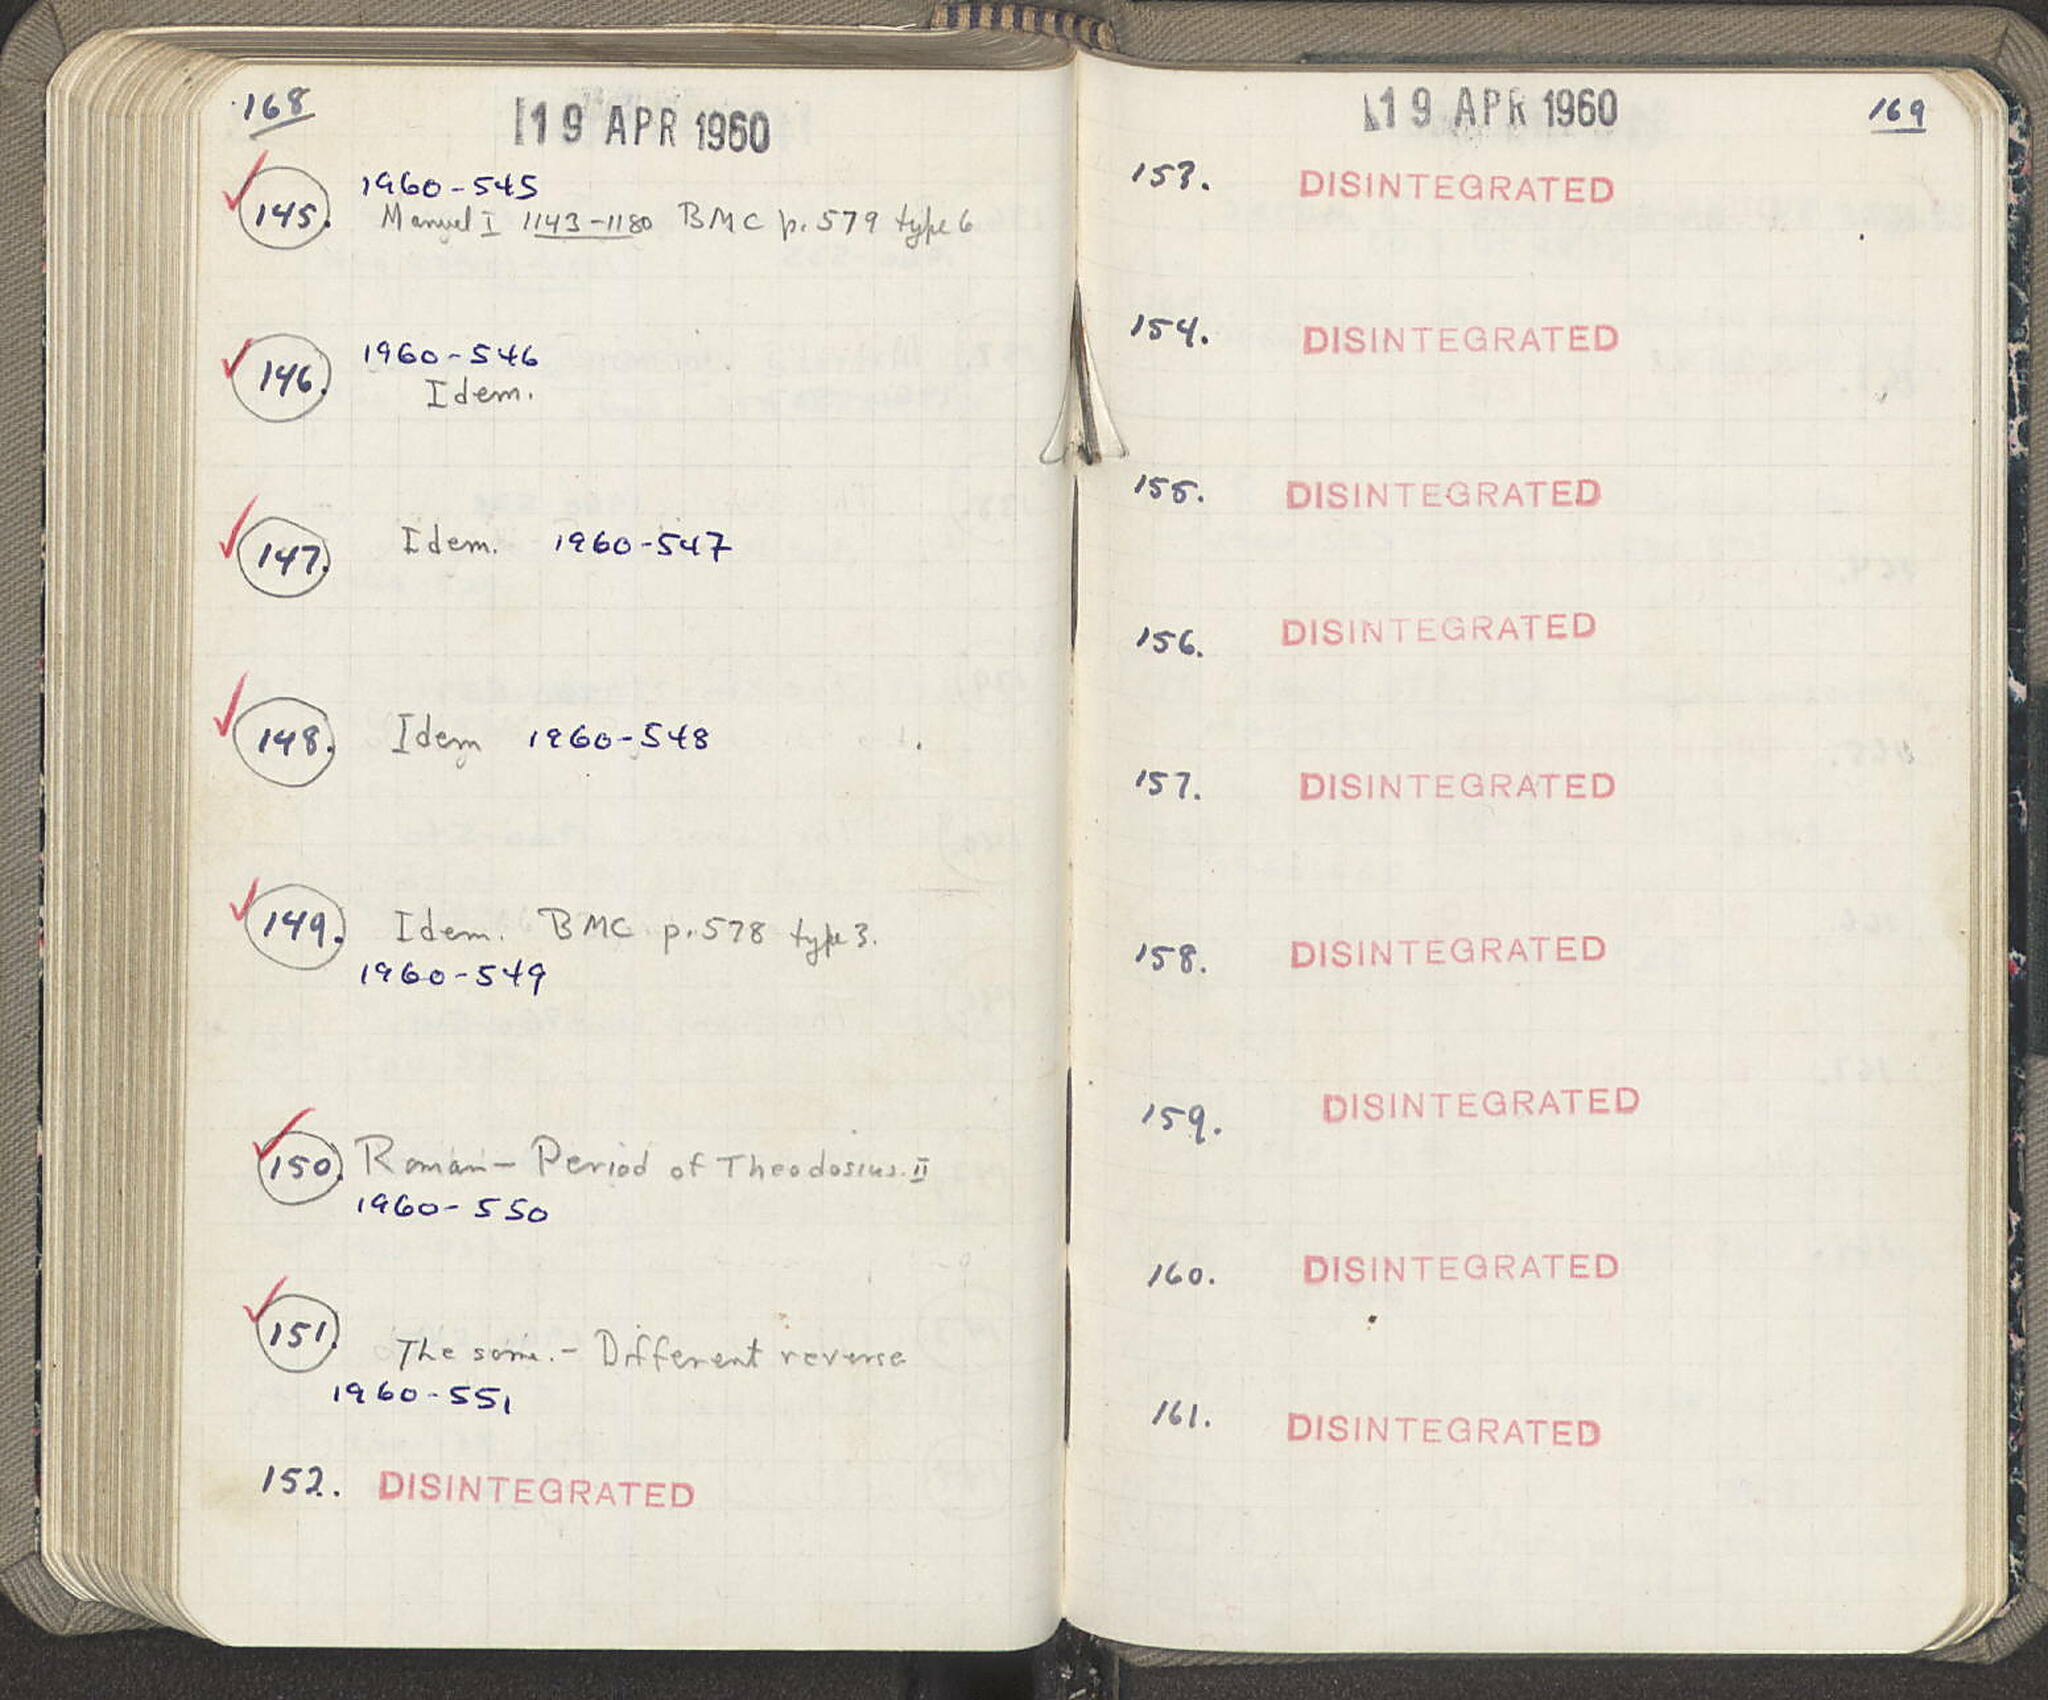 168
19 APR 1960
145. 1960-545
Manuel I 1143-1180 BMC p.579 type 6
146. 1960-546
Idem.
147. Idem. 1960-547
148. Idem 1960-548
149. Idem. BMC p.578 type 3.
1960-549
150. Roman- Period of Theodosius II
1960-550
151. The same.- Different reverse
1960-551
152. DISINTEGRATED
19 APR 1960
169
153. DISINTEGRATED
154. DISINTEGRATED
155. DISINTEGRATED
156. DISINTEGRATED
157. DISINTEGRATED
158. DISINTEGRATED
159. DISINTEGRATED
160. DISINTEGRATED
161. DISINTEGRATED